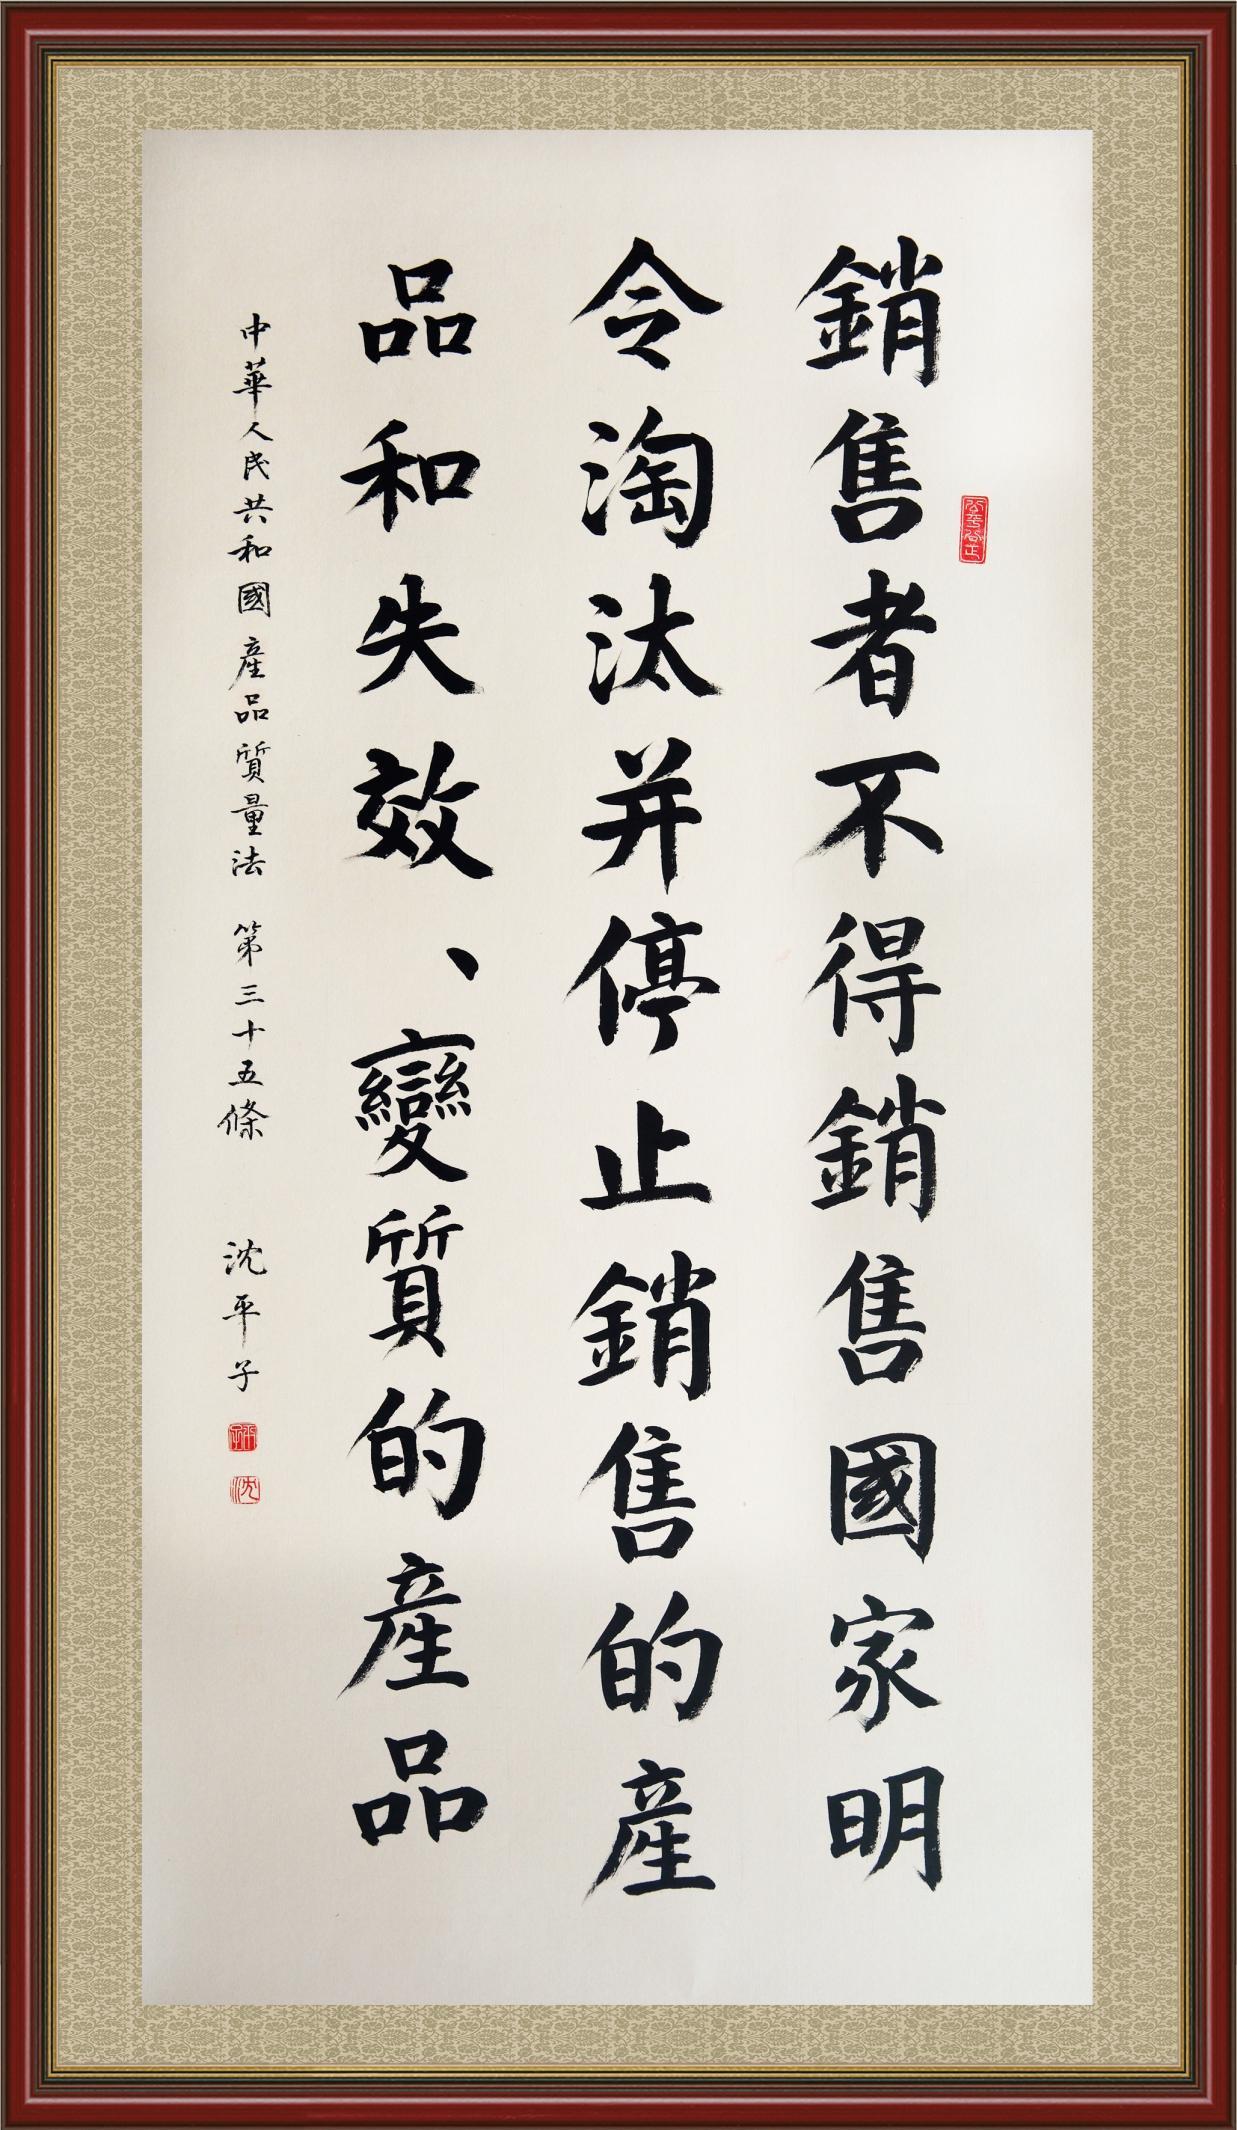 銷售者不得銷售國家明
令淘汰并停止銷售的產
品和失效、變質的產品
中華人民共和國產品質量法 第三十五條 沈平子
公平公正
平子
沈